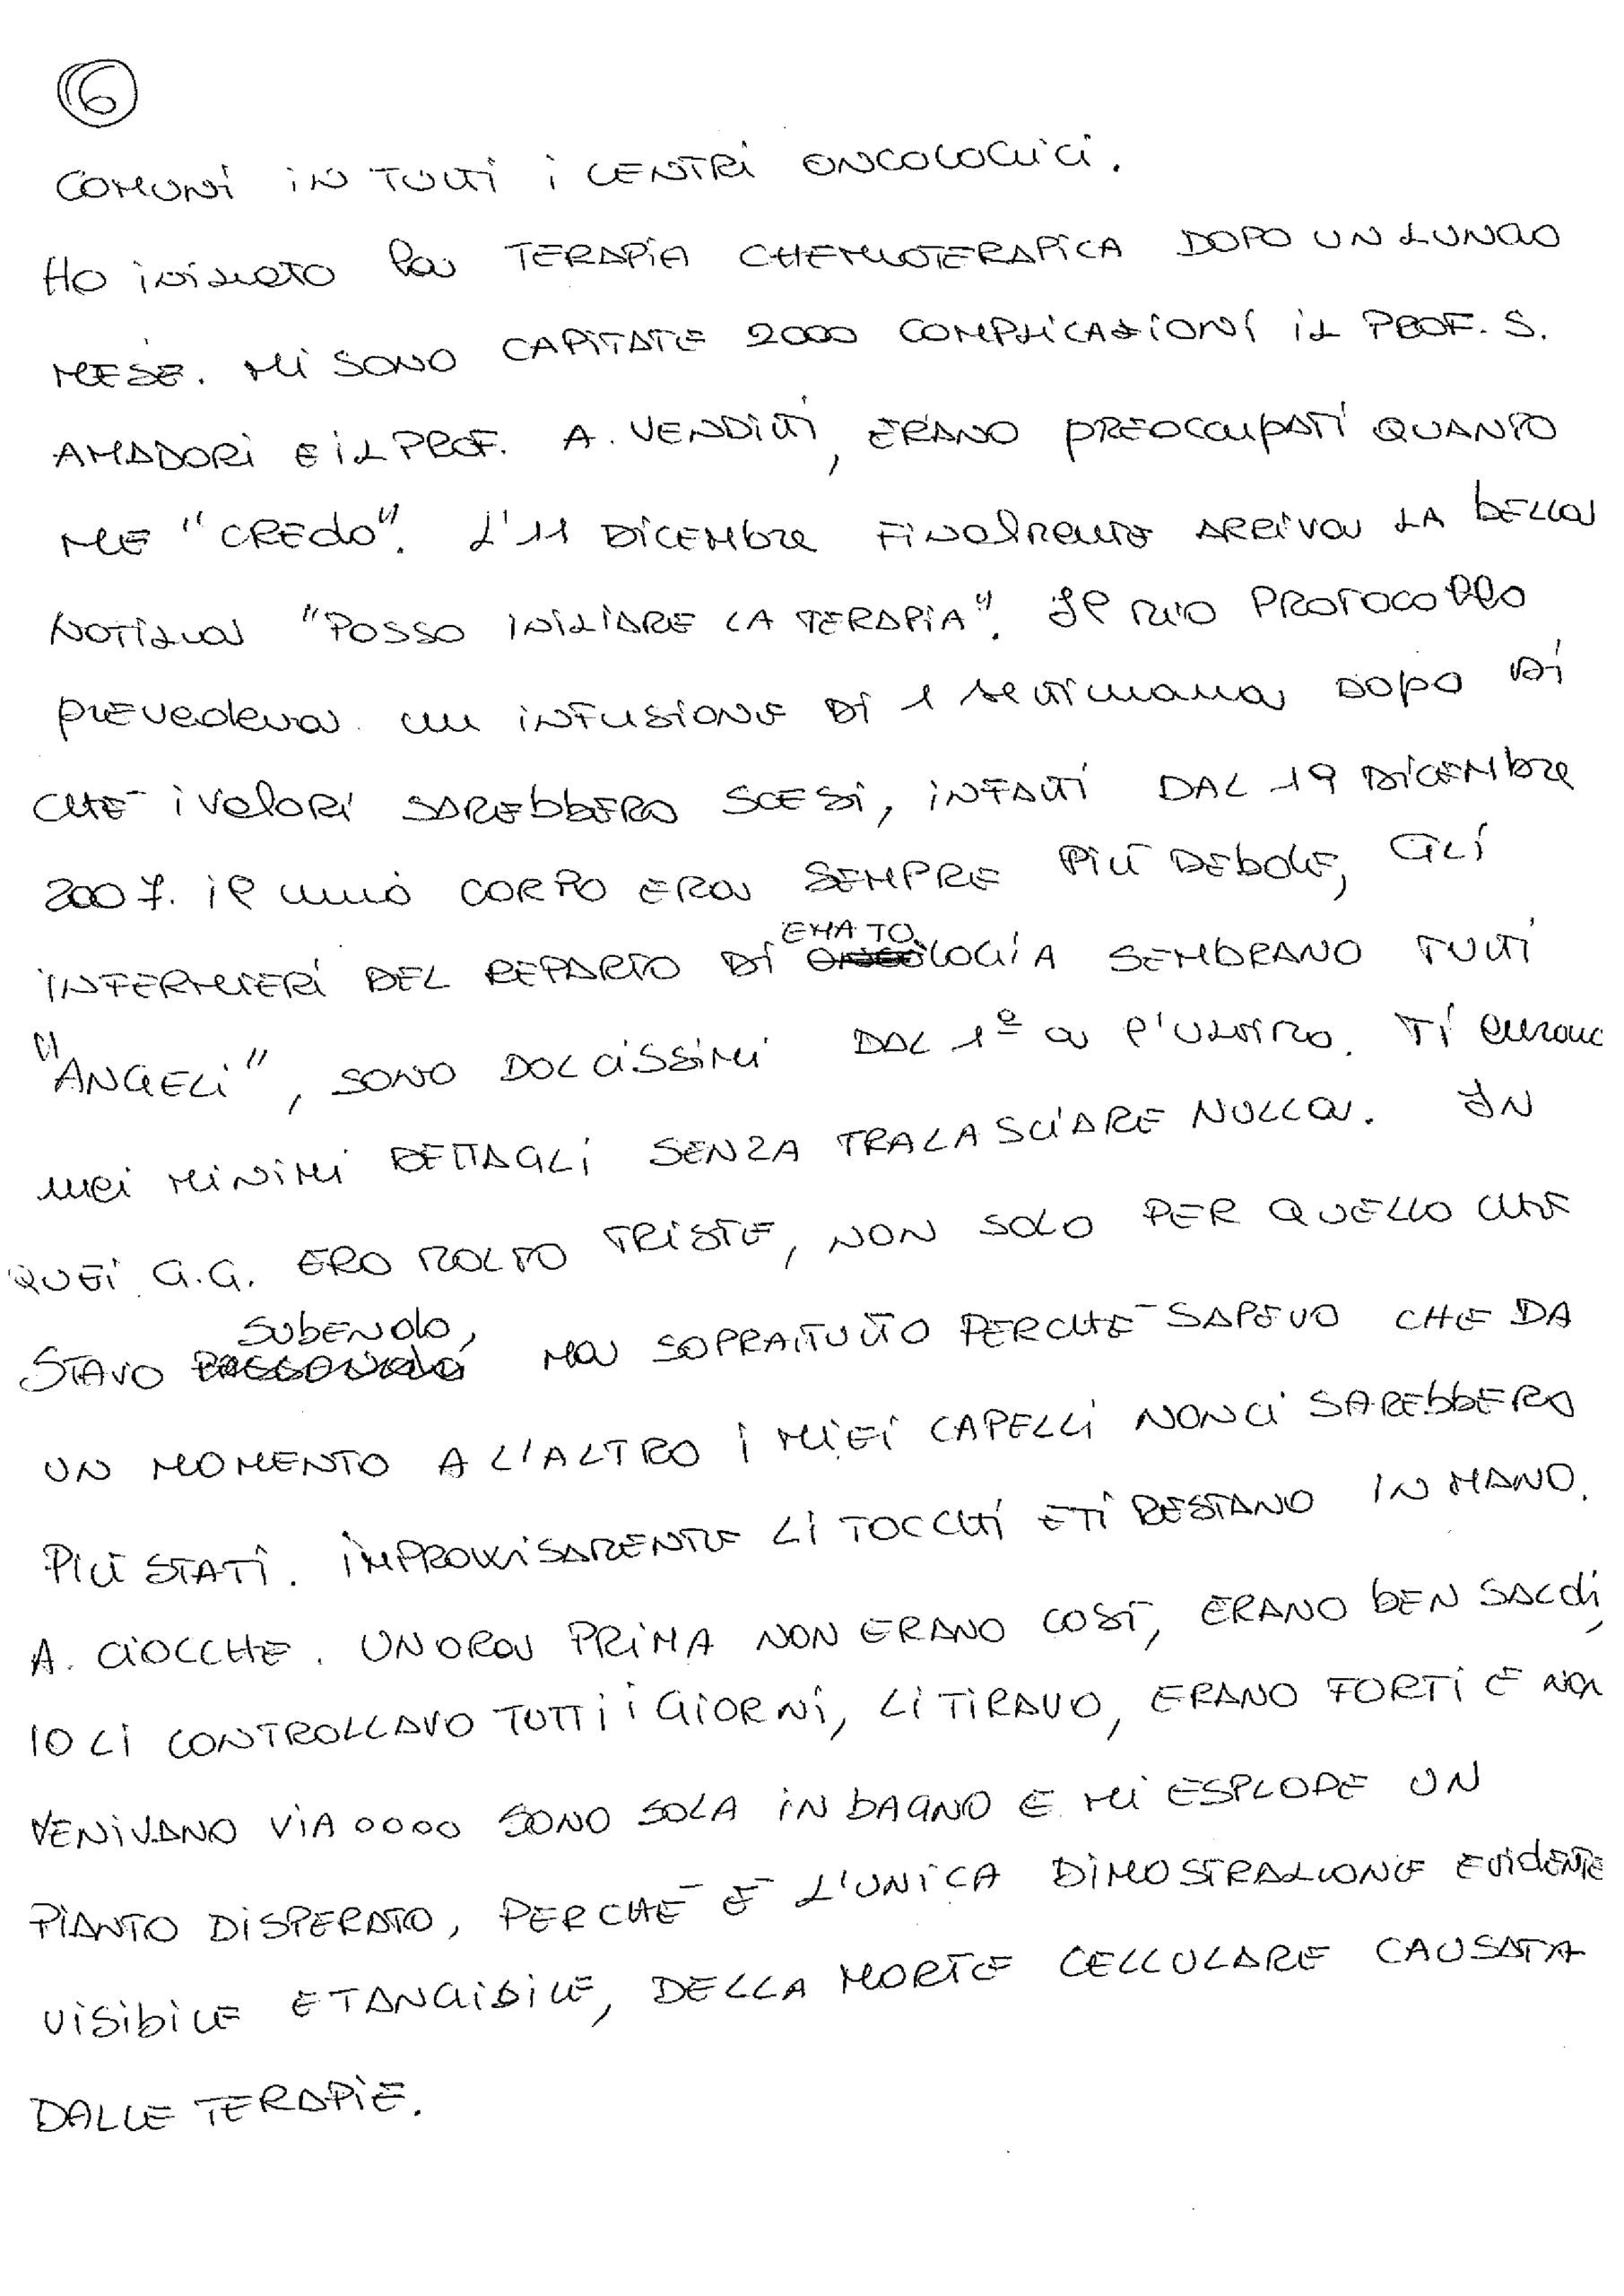 6
COMUNI IN TUTTI I CENTRI ONCOLOGICI.
HO INIZIATO la TERAPIA CHEMIOTERAPICA DOPO UN LUNGO
MESE. MI SONO CAPITATE 2000 COMPLICAZIONI IL PROF. S.
AMADORI E IL PROF. A. VENDITTI, ERANO PREOCCUPATI QUANTO
ME "CREDO". L'11 DICEMBRE FINALMENTE ARRIVA LA BELLA
NOTIZIA "POSSO INIZIARE LA TERAPIA". Il MIO PROTOCOLLO
PREVEDEVA un INFUSIONE DI 1 settimana DOPO DI
CHE I VALORI SAREBBERO SCESI, INFATTI DAL 19 DICEMBRE
2007. il mio CORPO ERA SEMPRE PIÙ DEBOLE, GLI
EMATO
INFERMIERI DEL REPARTO DI LOGIA SEMBRANO TUTTI
"ANGELI", SONO DOLCISSIMI DAL 1º a l'ULTIMO. TI curano
nei MINIMI DETTAGLI SENZA TRALASCIARE NULLA. IN
QUEI G.G. ERO MOLTO TRISTE, NON SOLO PER QUELLO CHE
SUBENDO,
STAVO MA SOPRATTUTTO PERCHÉ SAPEVO CHE DA
UN MOMENTO A L'ALTRO I MIEI CAPELLI NON CI SAREBBERO
PIÙ STATI. IMPROVVISAMENTE LI TOCCHI E TI RESTANO IN MANO.
A. CIOCCHE. UN ORA PRIMA NON ERANO COSÌ, ERANO BEN SALDI,
IO LI CONTROLLAVO TUTTI I GIORNI, LI TIRAVO, ERANO FORTI E NON
VENIVANO VIA oooo SONO SOLA IN BAGNO E MI ESPLODE UN
PIANTO DISPERATO, PERCHÉ È L'UNICA DIMOSTRAZIONE EVIDENTE
VISIBILE E TANGIBILE, DELLA MORTE CELLULARE CAUSATA
DALLE TERAPIE.